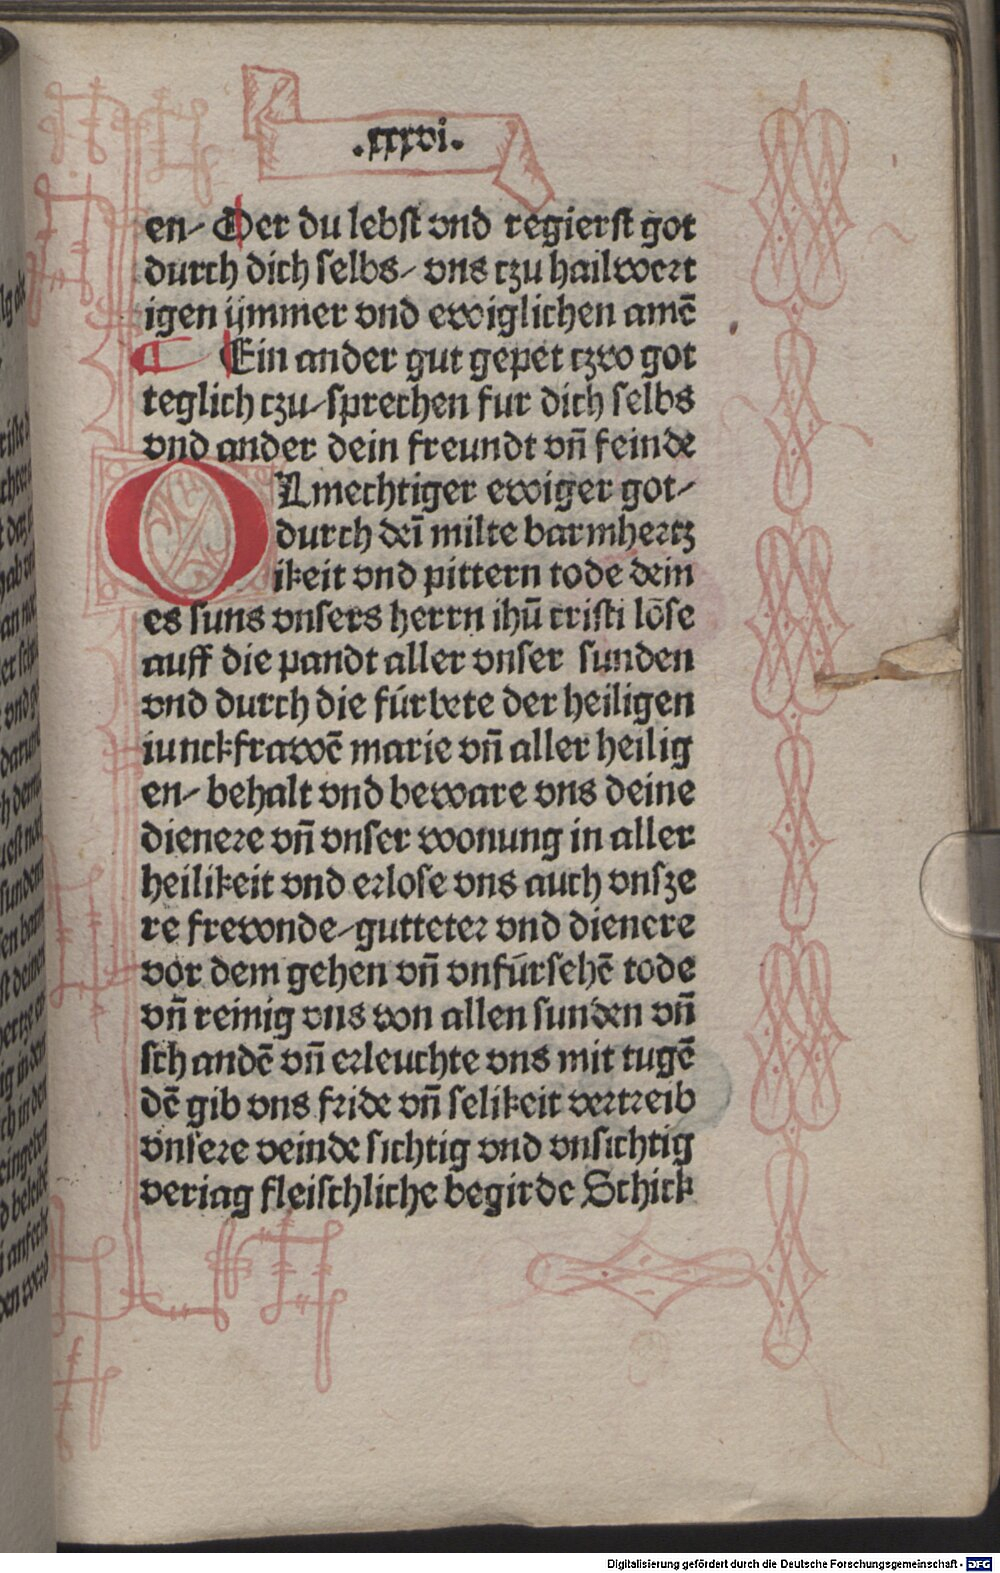 .xxxvi.
en- Der du lebst vnd regierst got
durch dich selbs- vns tzu hailwert
igen ijmmer vnd ewiglichen amē
Ein ander gut gepet tzwo got
teglich tzu-sprechen fur dich selbs
vnd ander dein freundt vñ feinde
O Lmechtiger ewiger got-
durch deī milte barmhertz
ikeit vnd pittern tode dein
es suns vnsers herrn ihū cristi lōse
auff die pandt aller vnser sunden
vnd durch die fúrbete der heiligen
iunckfrawē marie vñ aller heilig
en- behalt vnd beware vns deine
dienere vñ vnser wonung in aller
heilikeit vnd erlose vns auch vnsze
re frewnde-gutteter vnd dienere
vor dem gehen vñ vnfúrsehē tode
vñ reinig vns von allen sunden vñ
schandē vñ erleuchte vns mit tugē
dē gib vns fride vñ selikeit vertreib
vnsere veinde sichtig vnd vnsichtig
veriag fleischliche begirde Schick
Digitalisierung gefördert durch die Deutsche Forschungsgemeinschaft - DFG